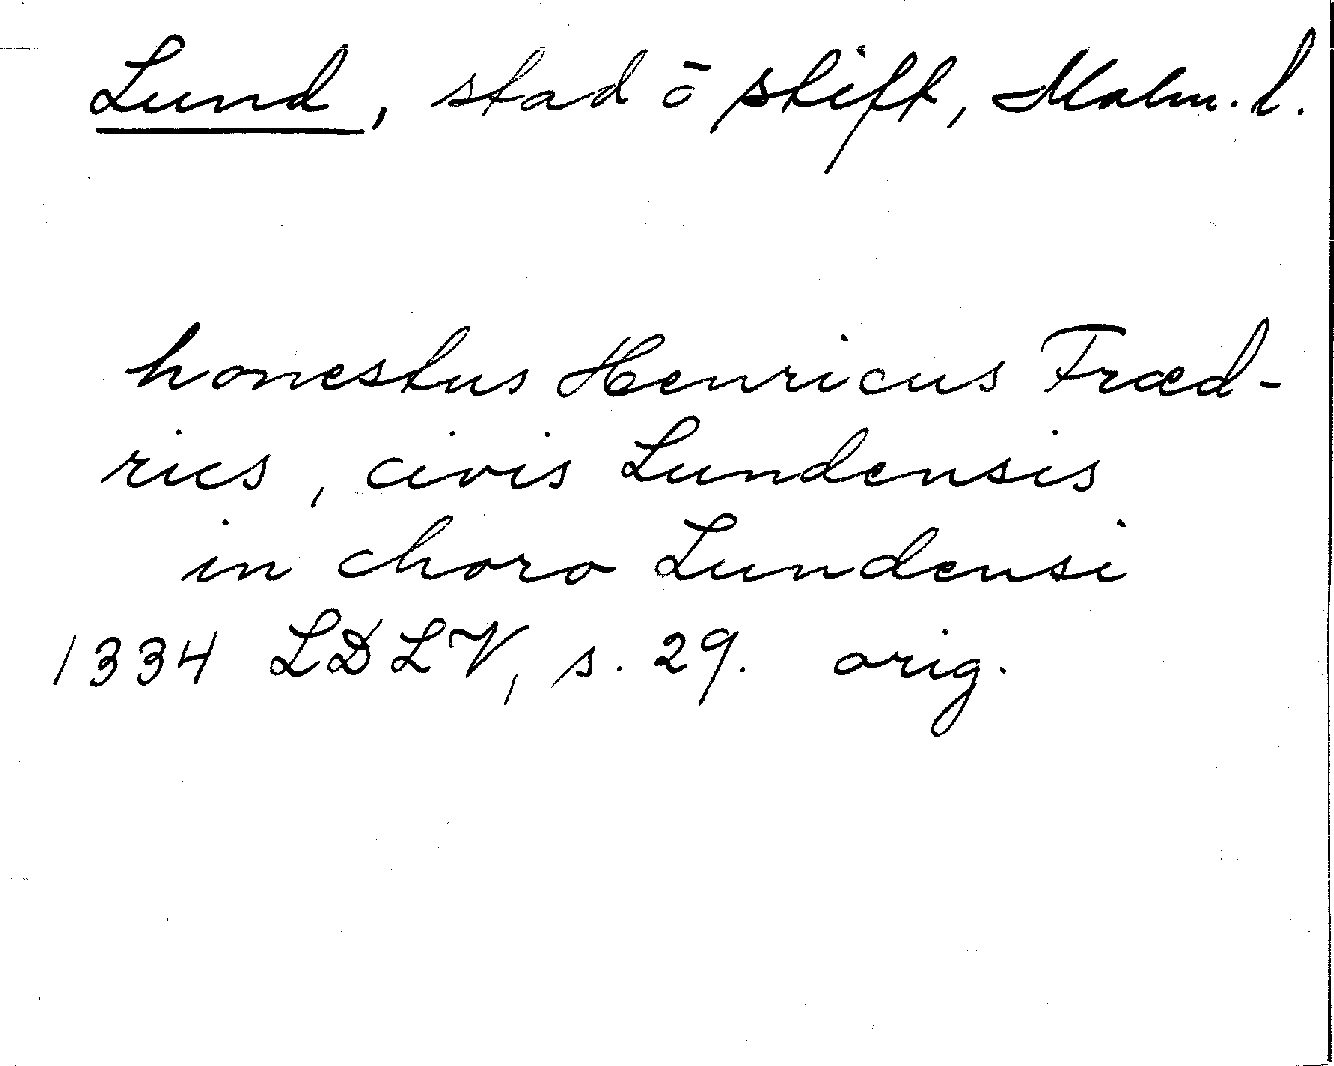 Lund, stad ō stift, Malm. l.
honestus Henricus Fræd-
rics, civis Lundensis
in choro Lundensi
1334 LDLV, s. 29. orig.